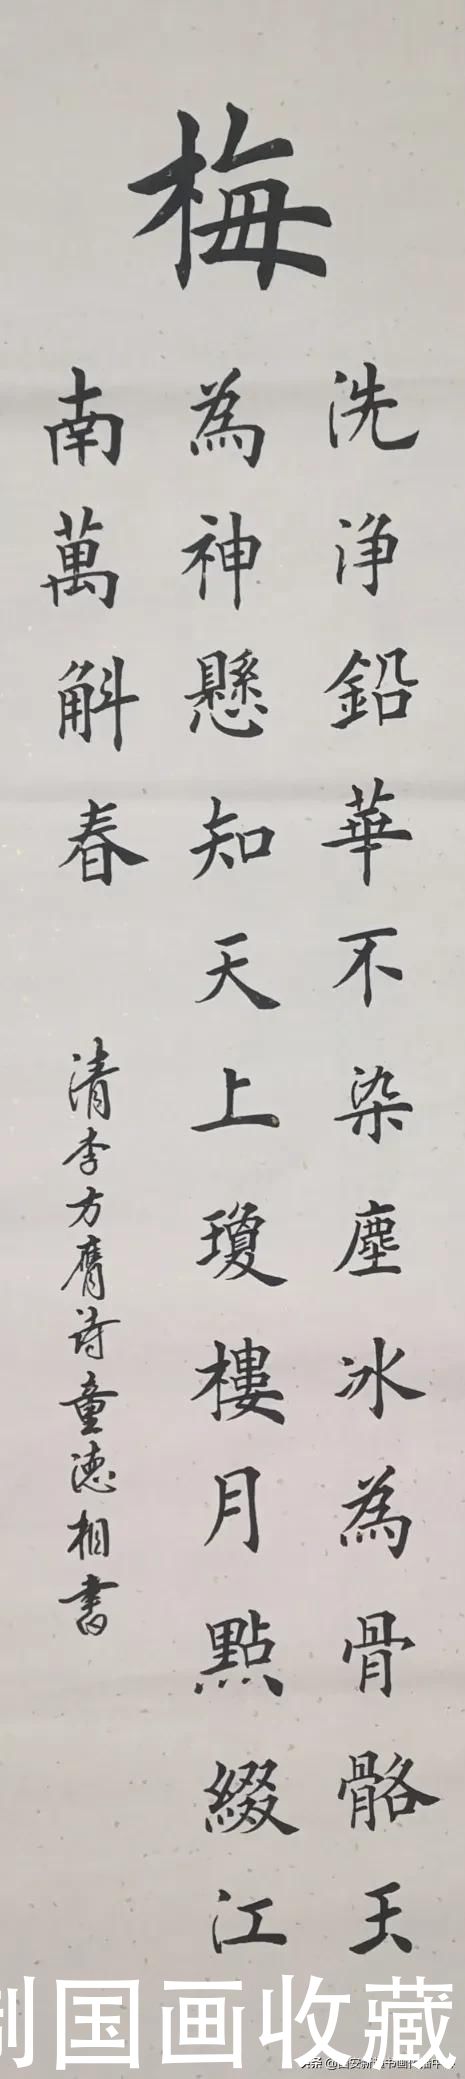 梅
洗净鉛華不染塵冰為骨骼玉
為神懸知天上瓊樓月點綴江
南萬斛春
清李方膺詩童德相書
国画收藏